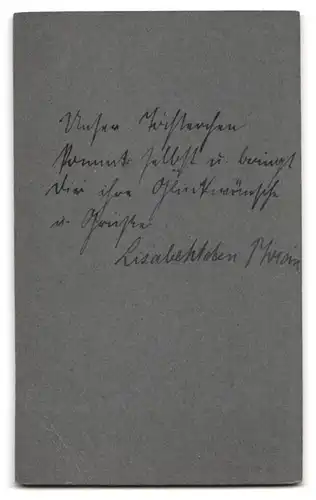 Unser Töchterchen
kommt selbst u. bringt
Dir ihre Glückwünsche
u. Grüße
Lisabethchen